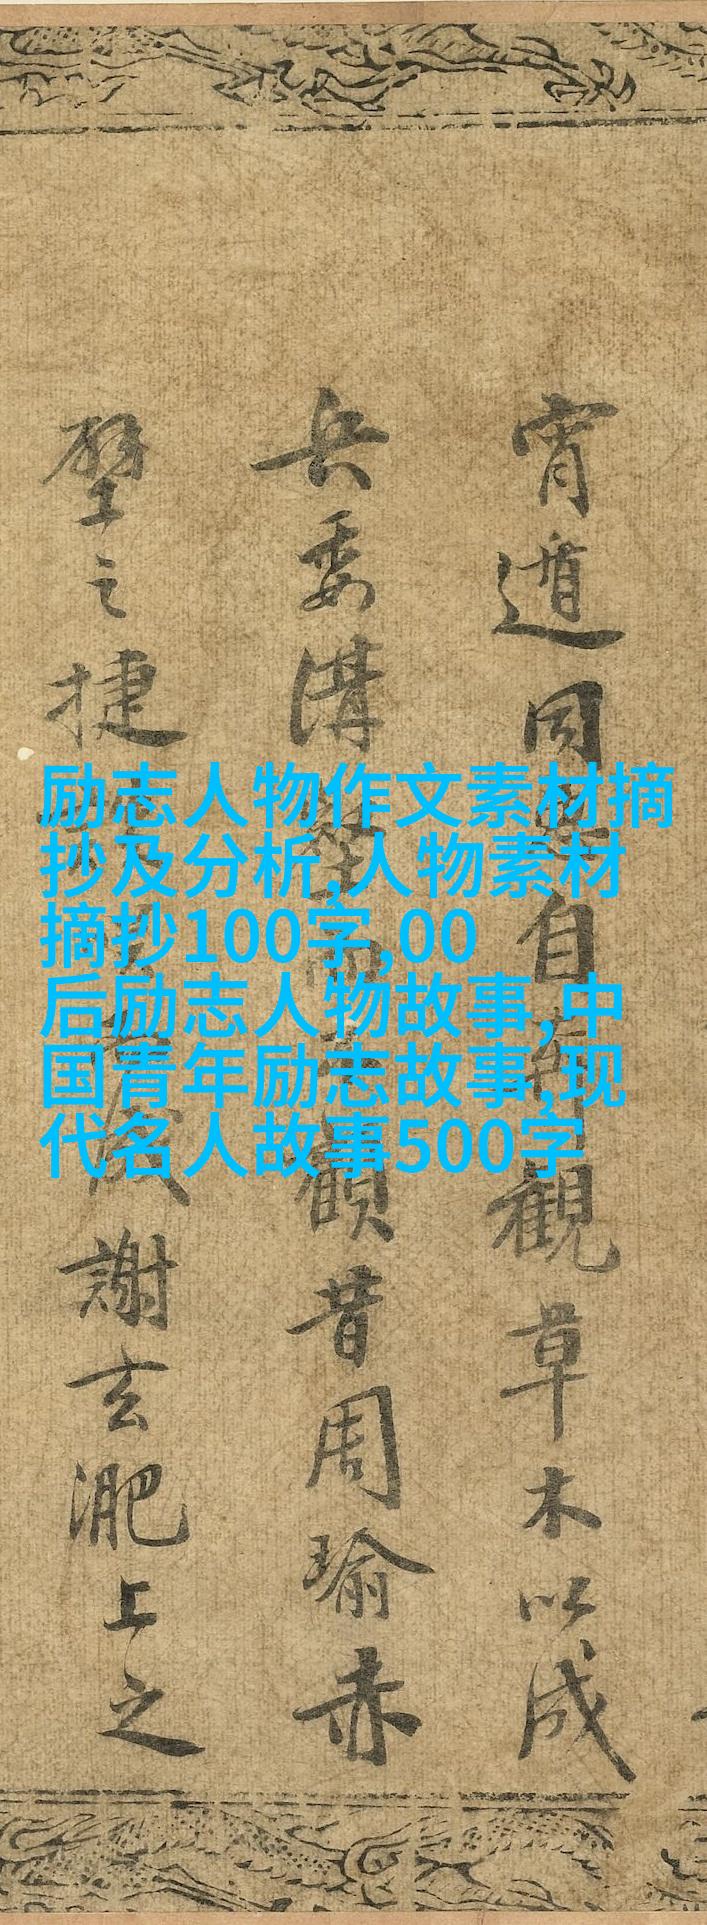 宵遁同惡自奔觀草木以成
兵委溝壑而不顧昔周瑜赤
壁之捷談笑而成謝玄淝上之
励志人物作文素材摘
抄及分析,人物素材
摘抄100字,00
后励志人物故事,中
国青年励志故事,现
代名人故事500字